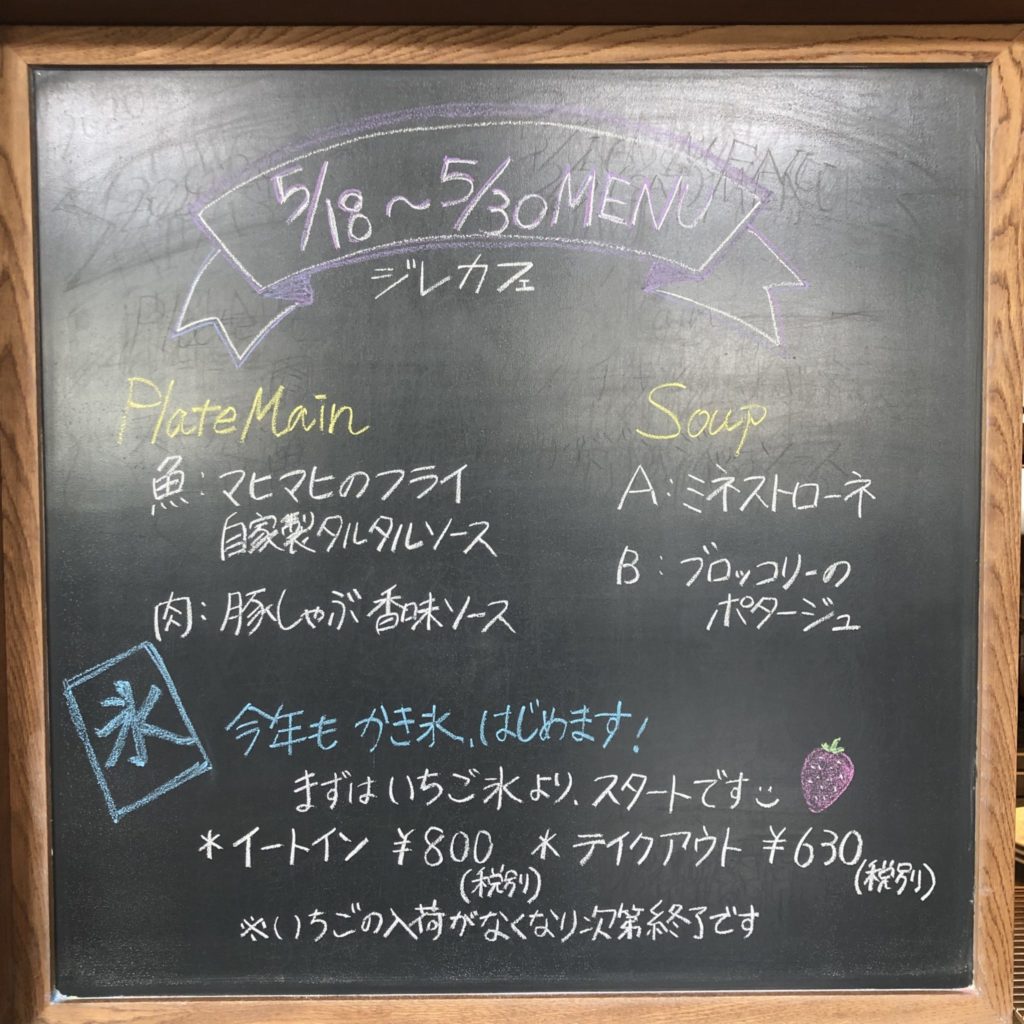 5/18～5/30 MENU
ジレカフェ
Plate Main
魚：マヒマヒのフライ
自家製タルタルソース
肉：豚しゃぶ香味ソース
Soup
A：ミネストローネ
B：ブロッコリーの
ポタージュ
氷
今年もかき氷、はじめます！
まずはいちご氷より、スタートです
＊イートイン ¥800 ＊テイクアウト ¥630
(税別) (税別)
※いちごの入荷がなくなり次第終了です